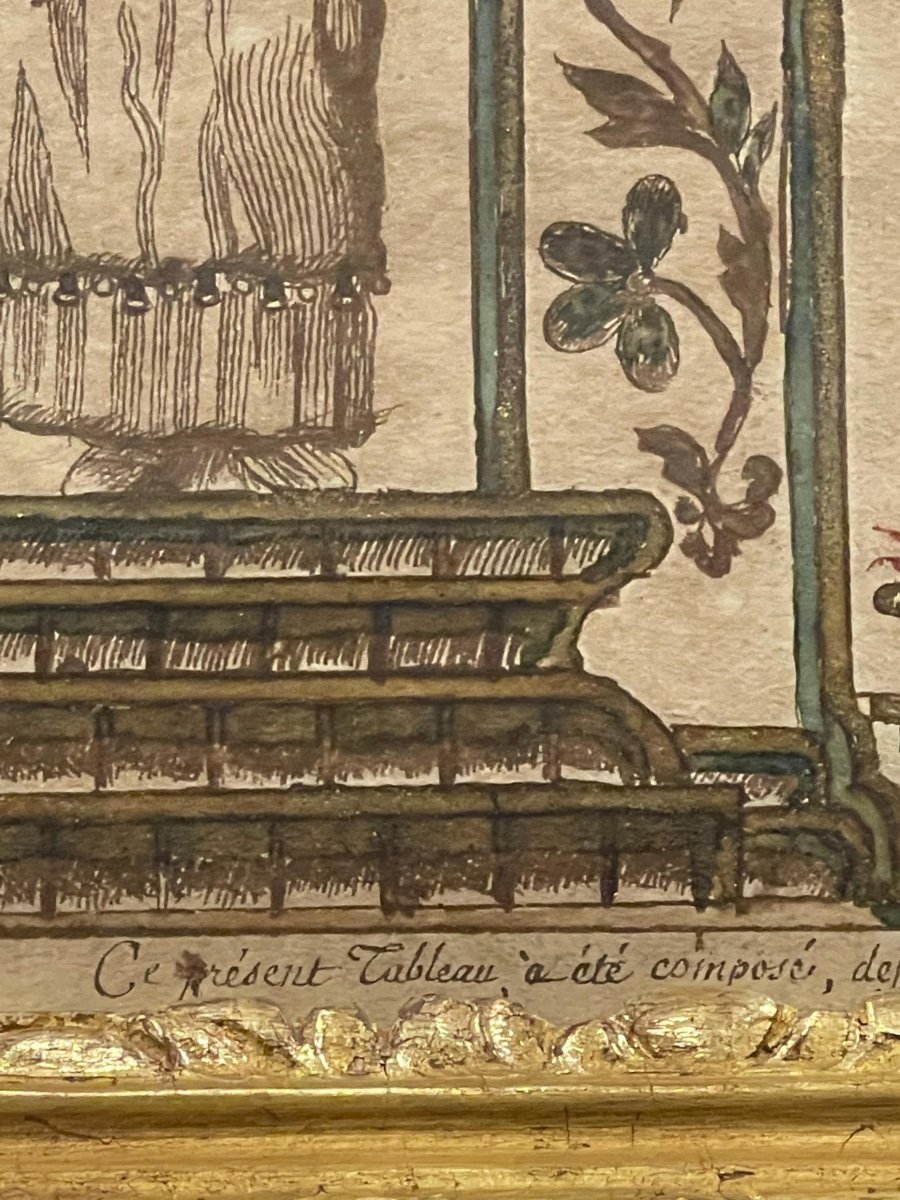 Ce présent Tableau, à été composé,